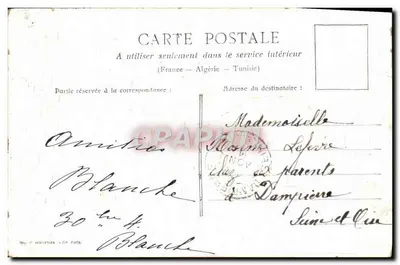 CARTE POSTALE
A utiliser seulement dans le service intérieur
(France — Algérie — Tunisie)
Partie réservée à la correspondance
Adresse du destinataire
Amitiés
Blanche
Blanche
Mademoiselle
Lefèvre
chez ses Parents
à Dampierre
Seine et Oise